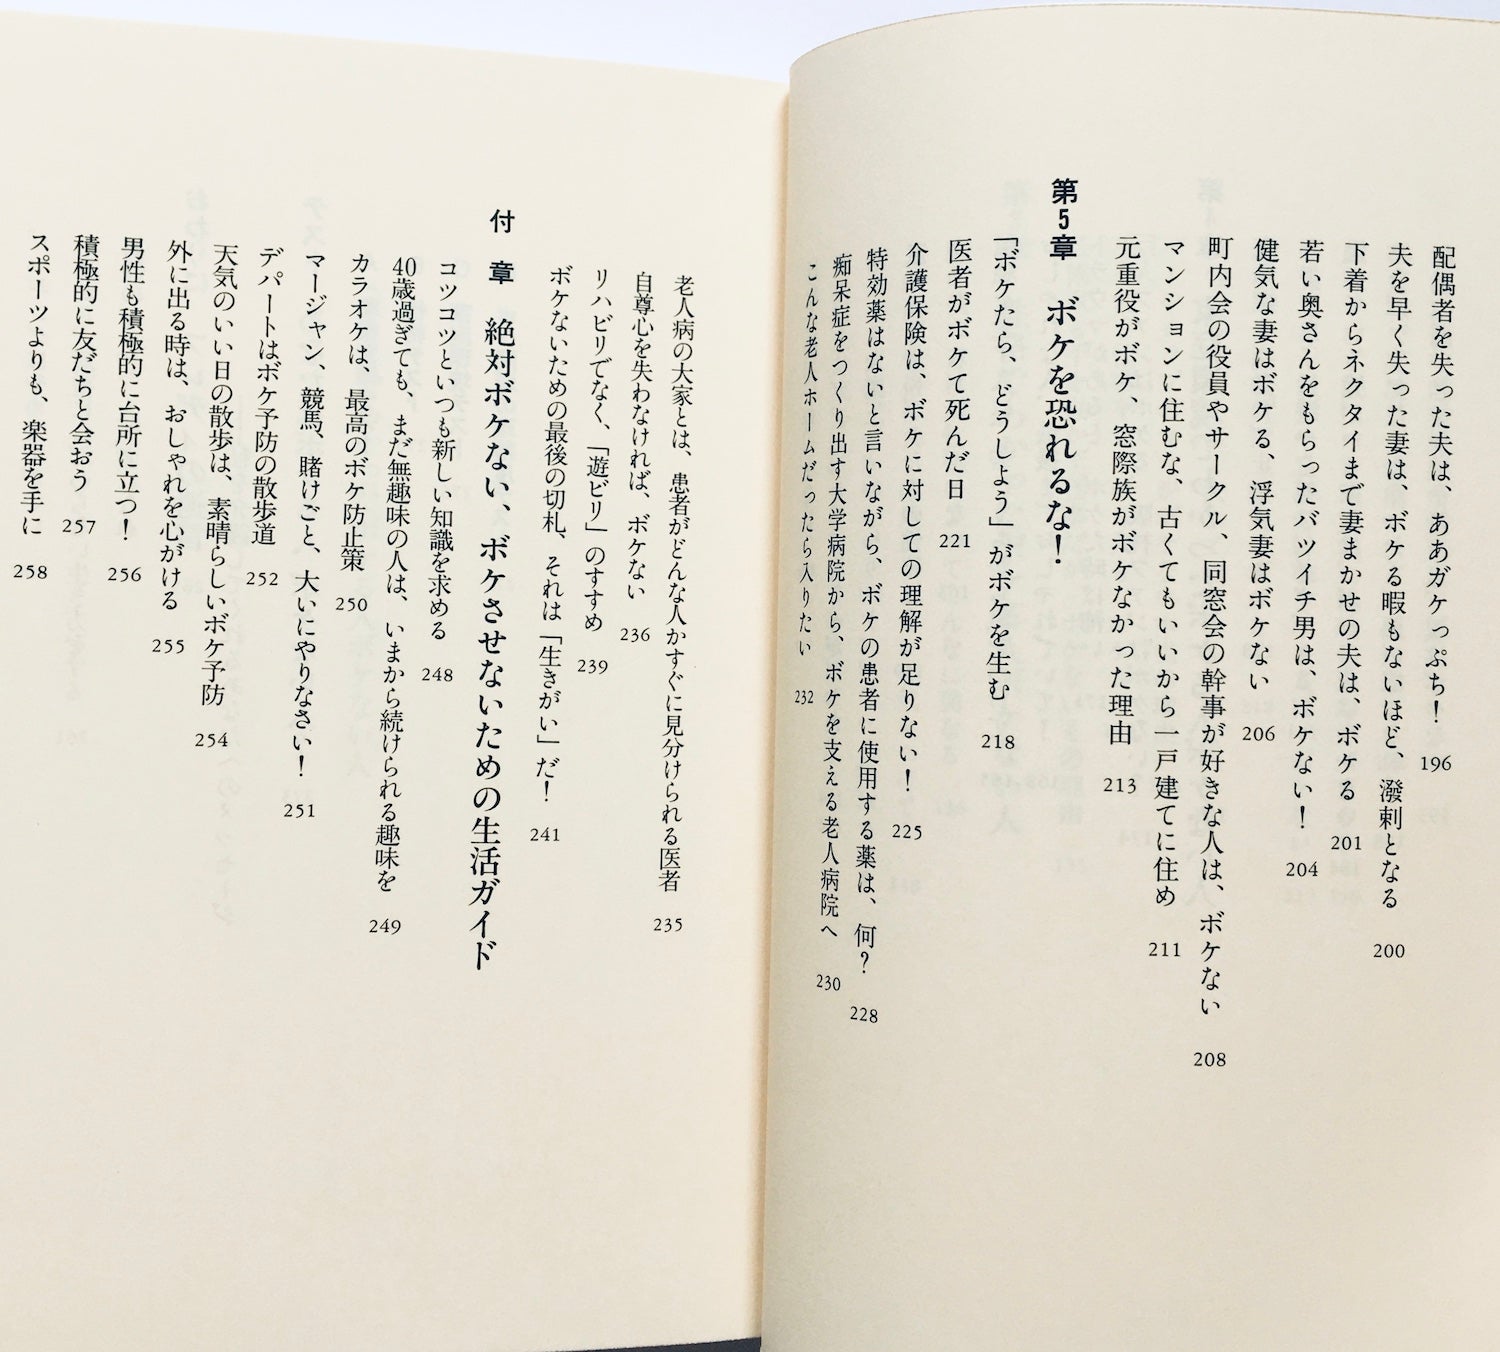 配偶者を失った夫は、ああガケっぷち！ 196
夫を早く失った妻は、ボケる暇もないほど、潑剌となる 200
下着からネクタイまで妻まかせの夫は、ボケる 201
若い奥さんをもらったバツイチ男は、ボケない！ 204
健気な妻はボケる、浮気妻はボケない 206
町内会の役員やサークル、同窓会の幹事が好きな人は、ボケない 208
マンションに住むな、古くてもいいから一戸建てに住め 211
元重役がボケ、窓際族がボケなかった理由 213
第5章 ボケを恐れるな！
「ボケたら、どうしよう」がボケを生む 218
医者がボケて死んだ日 221
介護保険は、ボケに対しての理解が足りない！ 225
特効薬はないと言いながら、ボケの患者に使用する薬は、何？ 228
痴呆症をつくり出す大学病院から、ボケを支える老人病院へ 230
こんな老人ホームだったら入りたい 232
老人病の大家とは、患者がどんな人かすぐに見分けられる医者 235
自尊心を失わなければ、ボケない 236
リハビリでなく、「遊ビリ」のすすめ 239
ボケないための最後の切札、それは「生きがい」だ！ 241
付章 絶対ボケない、ボケさせないための生活ガイド
コツコツといつも新しい知識を求める 248
40歳過ぎても、まだ無趣味の人は、いまから続けられる趣味を 249
カラオケは、最高のボケ防止策 250
マージャン、競馬、賭けごと、大いにやりなさい！ 251
デパートはボケ予防の散歩道 252
天気のいい日の散歩は、素晴らしいボケ予防 254
外に出る時は、おしゃれを心がける 255
男性も積極的に台所に立つ！ 256
積極的に友だちと会おう 257
スポーツよりも、楽器を手に 258